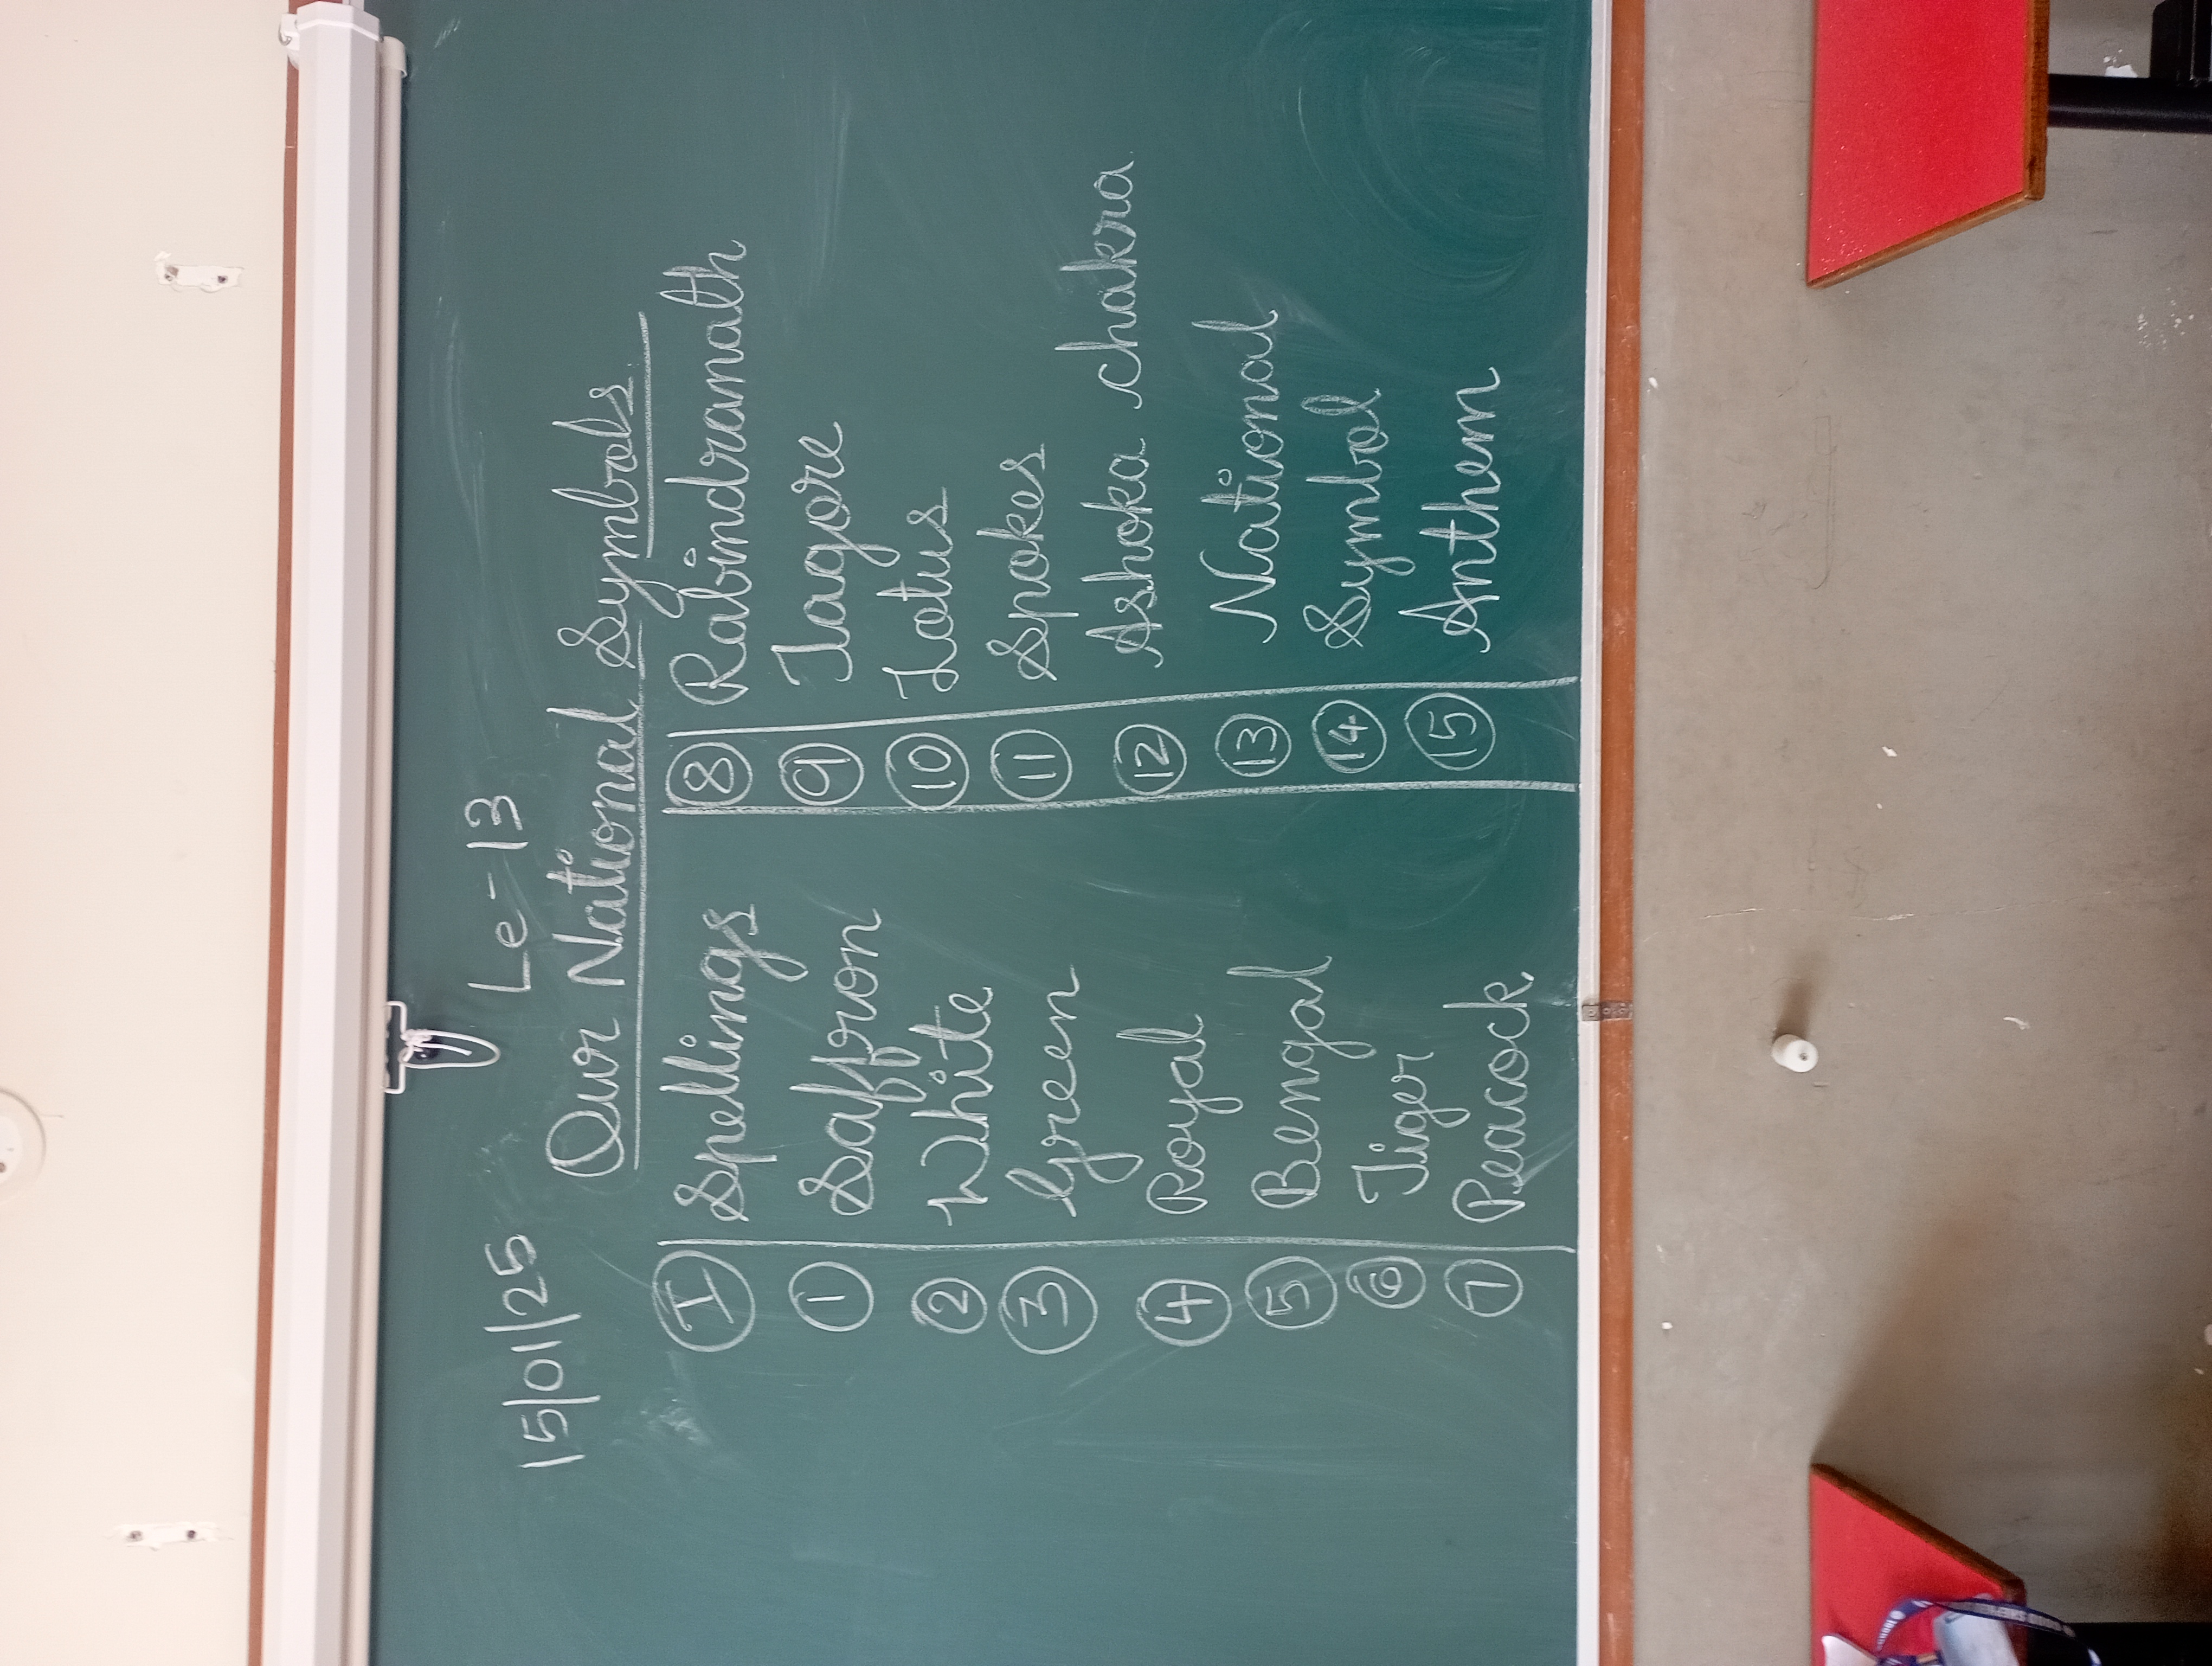 15/01/25 Le-13
Our National Symbols
I Spellings
1 Saffron
2 White
3 Green
4 Royal
5 Bengal
6 Tiger
7 Peacock.
8 Rabindranath
9 Tagore
10 Lotus
11 Spokes
12 Ashoka chakra
13 National
14 Symbol
15 Anthem